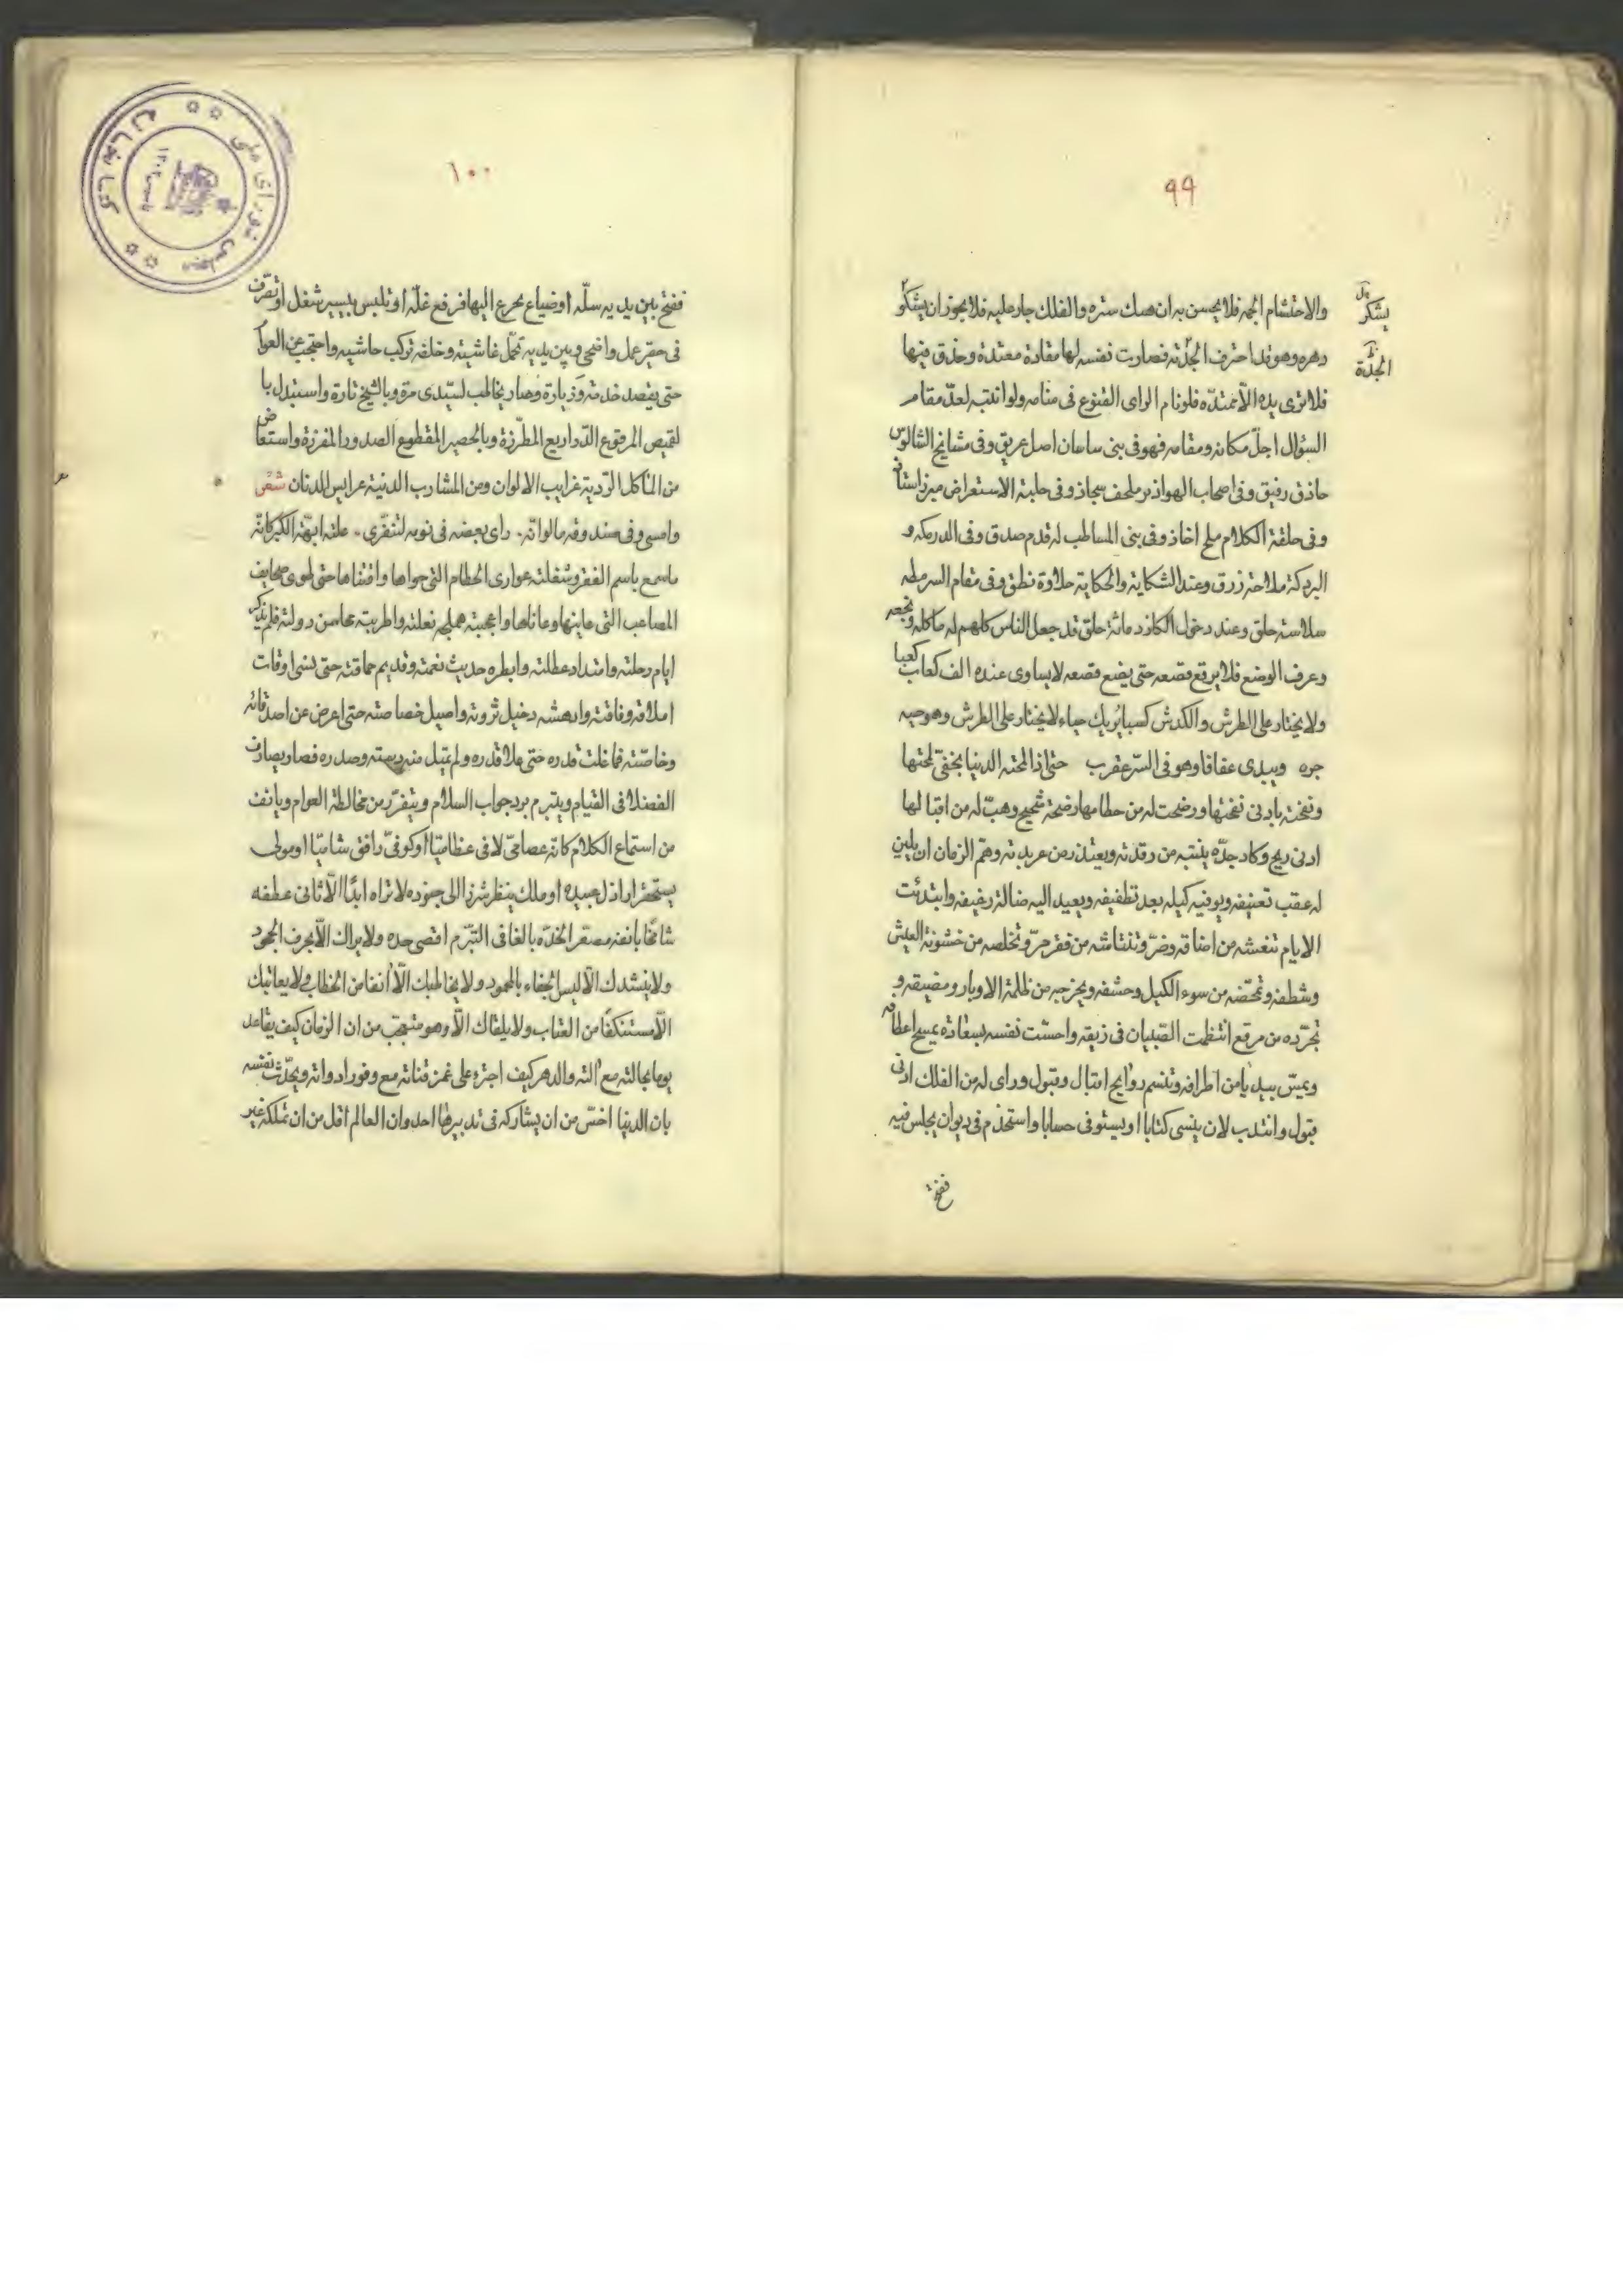 ٩٩
والاحتشام الجمه فلا يحسن به ان هتك ستره والفلك جار عليه فلا يجوز ان يشكو
يشكر
دهره وهو قد احترف الجدّته فصارت نفسه لها مقادة معتدة وحذق فيها
الجدّة
فلا ترى يده الّا ممتدّه فلو نام الراى القنوع فى منامه ولو انتدب لعدّ مقام
السؤال اجلّ مكانه ومقامه فهو فى بنى ساسان اصل عريق وفى مشايخ الشالوس
حاذق رفيق وفى اصحاب الهواذير ملحف سحاذ وفى حلبة الاستعراض
وفى حلقة الكلام ملح اخاذ وفى بنى المساطب له قدم صدق وفى الدرمكه و
البرمكة ملاحة زرق وعند الشكاية والحكاية حلاوة نطق وفى مقام السرمطه
سلاسة حلق وعند دخول الكازد مائة حلق قد جعل الناس كلهم له ماكله ونجعه
وعرف الوضع فلا يرقع قصعه حتى يضع قصعه لا يساوى عنده الف كعاب كعبا
ولا يختار على الطرش والكدش كسبا يريك حياء لا يختار على الطرش وهو حيه
جره ويبدى عفافا وهو فى السرّ عقرب حتى اذا لمحته الدنيا بخفىّ لمحتها
ونفحته بادنى نفحتها ورضحت له من حطامها رضحة شحيح وهبّ له من اقبالها
ادنى ريح وكاد جدّه ينتبه من رقدته ويعتذر من عربدته وهمّ الزمان ان يلين
له عقب تعنيفه ويوفيه كيله بعد تطفيفه ويعيد اليه ضالة رغيفه وابتدئت
الايام تنعشه من اضاقه وضرّ وتنتاشه من فقر مرّ وتخلصه من خشونة العيش
وشظفه وتمحّضه من سوء الكيل وحشفه ويخرجه من ظلمة الاوبار ومضيقه و
تجرّده من مرقع انتظمت الصّئبان فى زيقه واحسّت نفسه بسعادة يمسح اعطافه
ويمسّ بيد يامن اطرافه وتنسم روايح اقبال وقبول وراى له من الفلك ادنى
قبول وانتدب لان ينسى كتابا او يستوفى حسابا واستخدم فى ديوان يجلس فيه
ففتح
١٠٠
ففتح بين يديه سلّه او ضياع يخرج اليها فرفع غلّه او تلبس بيسير شغل او تصرّف
فى حقير عمل واضحى وبين يديه تحمل غاشيته وخلفه تركب حاشيه واحتجب عن العوا
حتى يقصد خدمته وزيارة وصار يخاطب لسيّدى مرة وبالشيخ تارة واستبدل با
لقميص المرقوع الدّراريع المطرّزة وبالحصير المقطوع الصدور المفرزة واستعاض
من المآكل الرّدية غرايب الالوان ومن المشارب الدنية عرايس الدنان شعر
وامسى وفى صندوقه ما لو انّه . راى بعضه فى نوبه لتنفّرى . علته ابهّة الكبر كانّه
ما سمع باسم الفقر وشغلته عوارى الحطام التى حواها واقتناها حتى طوى صحايف
المصاعب التى عاينها وعاناها واعجبته هملجه نعلته واطربته محاسن دولته فلم يذكر
ايام رحلته وامتداد عطلته وابطره حديث نعمته وقديم حماقته حتى ينسى اوقات
املاقه وفاقته وادهشه دخيل ثروته واصيل خصاصته حتى اعرض عن اصدقائه
وخاصّته فما غلت قدره حتى علا قدره ولم تميل منه دسته وصدره فصار يصادف
الفضلا فى القيام ويتبرم برد جواب السلام ويتفرّر من مخالطة العوام ويانف
من استماع الكلام كانه عصامىّ لاقى عظاميّا او كوفىّ رافق شاميّا او مولى
يستحقر اراذل عبيده او ملك ينظر شزرا الى جنوده لا تراه ابدًا الّا ثانى عطفه
شامخًا بانفه مصعّر الخدّه بالغا فى التبرّم اقصى حده ولا يراك الّا بحرف الجحود
ولا ينشدك الّا لبس الجفاء بالمحمود ولا يخاطبك الّا أنفا من الخطاب ولا يعاتبك
الّا مستنكفًا من العتاب ولا يلقاك الّا وهو متعجّب من ان الزمان كيف يقاعد
يوما بحالته مع آلته والدهر كيف اجترء على غمز قناته مع وفور ادواته ويحدّث نفسه
بان الدنيا اخسّ من ان يشاركه فى تدبيرها احد وان العالم اقل من ان تملكه غير